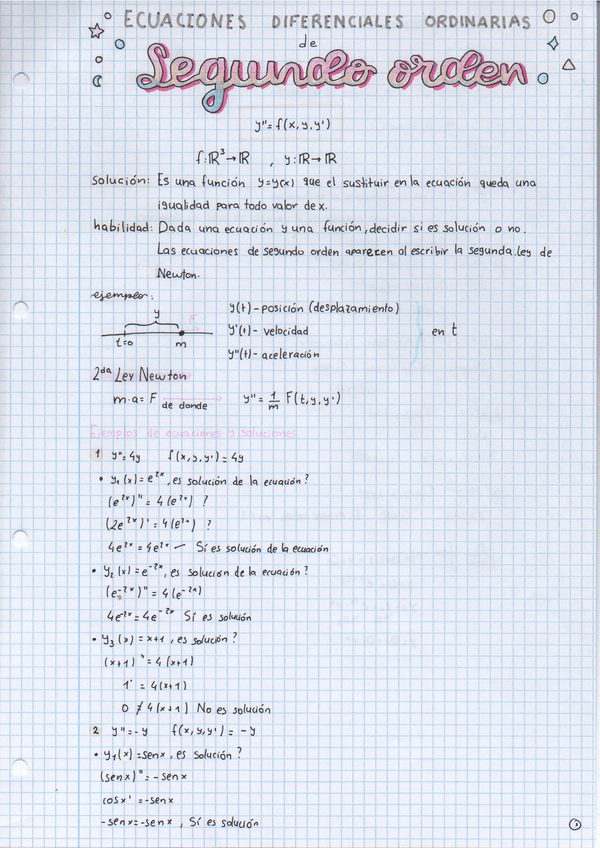 ECUACIONES DIFERENCIALES ORDINARIAS
de
Segundo orden
y"=f(x,y,y')
f:ℝ³→ℝ , y:ℝ→ℝ
solución: Es una función y=y(x) que el sustituir en la ecuación queda una
igualdad para todo valor de x.
habilidad: Dada una ecuación y una función, decidir si es solución o no.
Las ecuaciones de segundo orden aparecen al escribir la segunda ley de
Newton.
ejemplo:
y
t=0 m
y(t) - posición (desplazamiento)
y'(t) - velocidad en t
y"(t) - aceleración
2da Ley Newton
m·a=F de donde y"= 1/m F(t,y,y')
Ejemplos de ecuaciones y soluciones
1 y"=4y f(x,y,y')=4y
• y₁(x)=e²ˣ, es solución de la ecuación?
(e²ˣ)"=4(e²ˣ) ?
(2e²ˣ)'=4(e²ˣ) ?
4e²ˣ=4e²ˣ — Sí es solución de la ecuación
• y₂(x)=e⁻²ˣ, es solución de la ecuación?
(e⁻²ˣ)"=4(e⁻²ˣ)
4e⁻²ˣ=4e⁻²ˣ Sí es solución
• y₃(x)=x+1, es solución?
(x+1)"=4(x+1)
1'=4(x+1)
0≠4(x+1) No es solución
2 y"=-y f(x,y,y')=-y
• y₁(x)=senx, es solución?
(senx)"=-senx
cosx'=-senx
-senx=-senx, Sí es solución